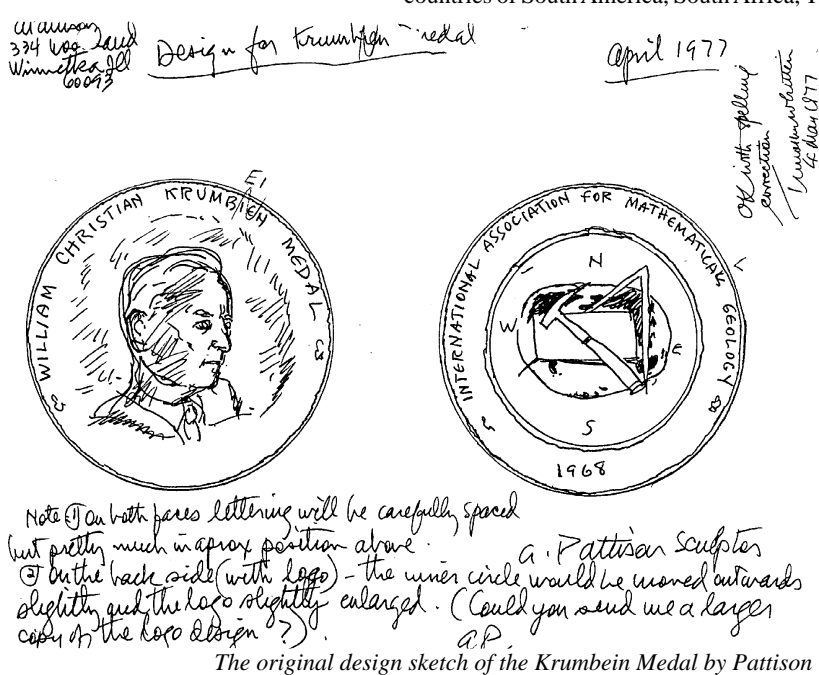 countries of South America, South Africa, T
334 Woodland
Winnetka Ill
60093
Design for Krumbien medal
april 1977
OK with spelling
correction
4 May 1977
EI
WILLIAM CHRISTIAN KRUMBIEN MEDAL
INTERNATIONAL ASSOCIATION FOR MATHEMATICAL GEOLOGY
N
W
E
S
1968
Note ① On both faces lettering will be carefully spaced
but pretty much in aprox position above.
a. Pattison Sculptor
② On the back side (with logo) - the inner circle would be moved outwards
slightly and the logo slightly enlarged. (Could you send me a larger
copy of the logo design?).
a.P.
The original design sketch of the Krumbein Medal by Pattison